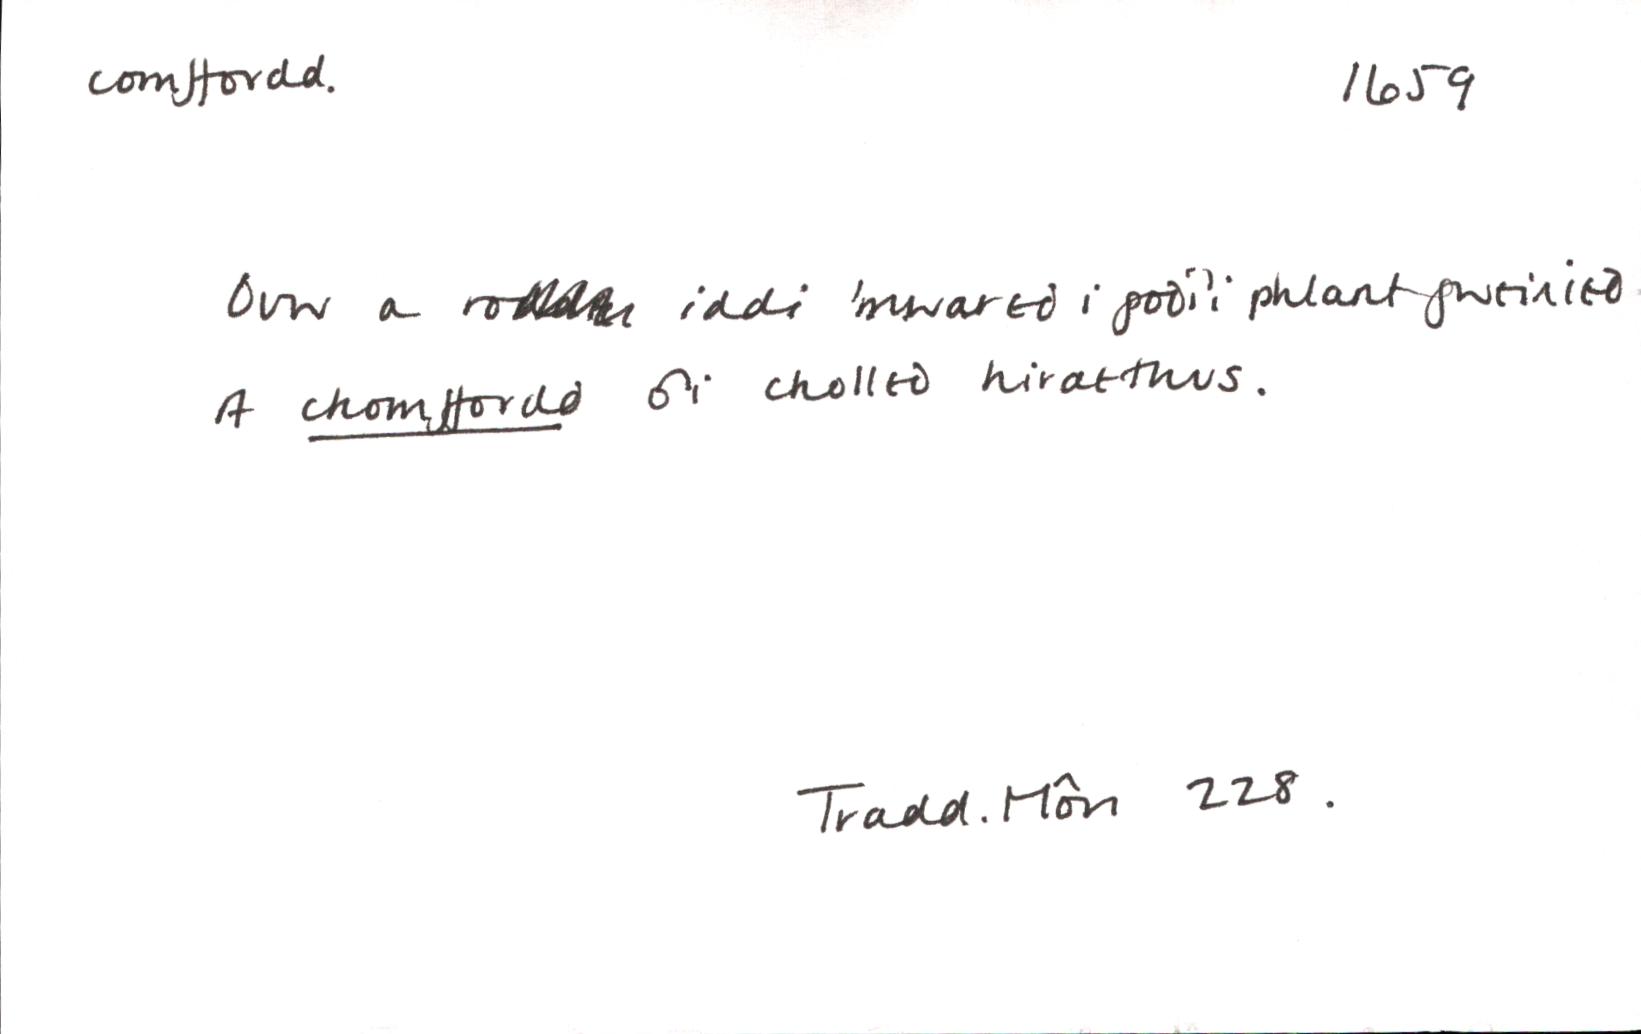 comffordd. 1659
Duw a iddi 'mwared i godi'i phlant gweinied
A chomffordd o'i cholled hiraethus.
Tradd. Môn 228.